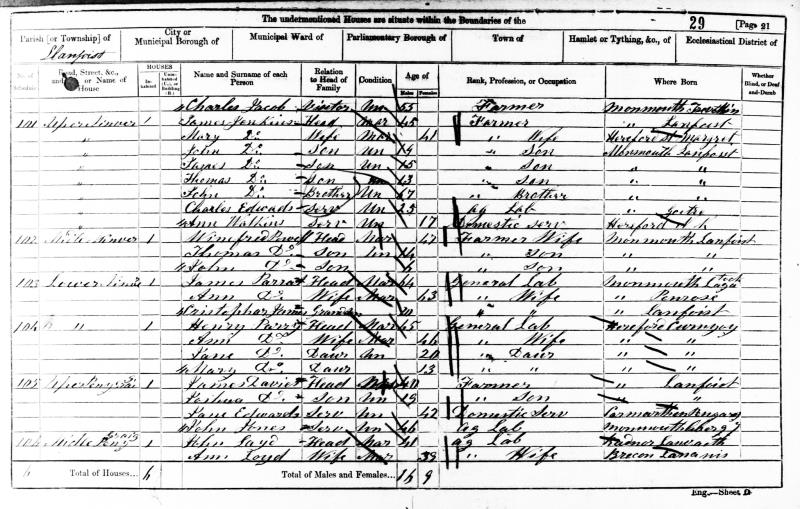 The undermentioned Houses are situate within the Boundaries of the 29 [Page 21
Parish [or Township] of City or Municipal Borough of Municipal Ward of Parliamentary Borough of Town of Hamlet or Tything, &c., of Ecclesiastical District of
Llanfoist
No. of Schedule Road, Street, &c., and or Name of House HOUSES Inhabited Uninhabited (U.), or Building (B.) Name and Surname of each Person Relation to Head of Family Condition Age of Males Females Rank, Profession, or Occupation Where Born Whether Blind, or Deaf-and-Dumb
Charles Jacob Visitor Un 55 Farmer Monmouth
101 1 James Jenkins Head Mar 45 Farmer " Lanfoist
" Mary Do Wife Mar 41 " Wife Hereford St Margret
" John Do Son Un 19 " Son Monmouth Lanfoist
" James Do Son Un 15 " Son " "
" Thomas Do Son Un 13 " Son " "
" John Do Brother Un 47 " Brother " "
" Charles Edwards Serv Un 25 Ag Lab " Goitre
" Ann Watkins Serv Un 17 Domestic Serv Hereford
102 1 Winifred Powell Head Mar 47 Farmer Wife Monmouth Lanfoist
Thomas Do Son Un 14 " Son " "
John Do Son 6 " Son " "
103 Lower 1 James Parrat Head Mar 64 General Lab Monmouth
Ann Do Wife Mar 63 " Wife " Penrose
Cristophar James Grandson 10 " " " Lanfoist
104 " " 1 Henry Parrat Head Mar 45 General Lab Hereford Cwmyoy
Ann Do Wife Mar 46 " Wife " "
Jane Do Daur Un 20 " Daur " "
Mary Do Daur 13 " " " "
105 1 James Davies Head Mar Farmer " Lanfoist
Joshua Do Son Un 19 " Son " "
Jane Edwards Serv Un 42 Domestic Serv Carmarthen
John Jones Serv Un 46 Ag Lab Monmouth
106 1 John Loyd Head Mar 41 Ag Lab Radnor
Ann Loyd Wife Mar 38 " Wife Brecon
6 Total of Houses... 6 Total of Males and Females... 16 9
Eng.—Sheet D.